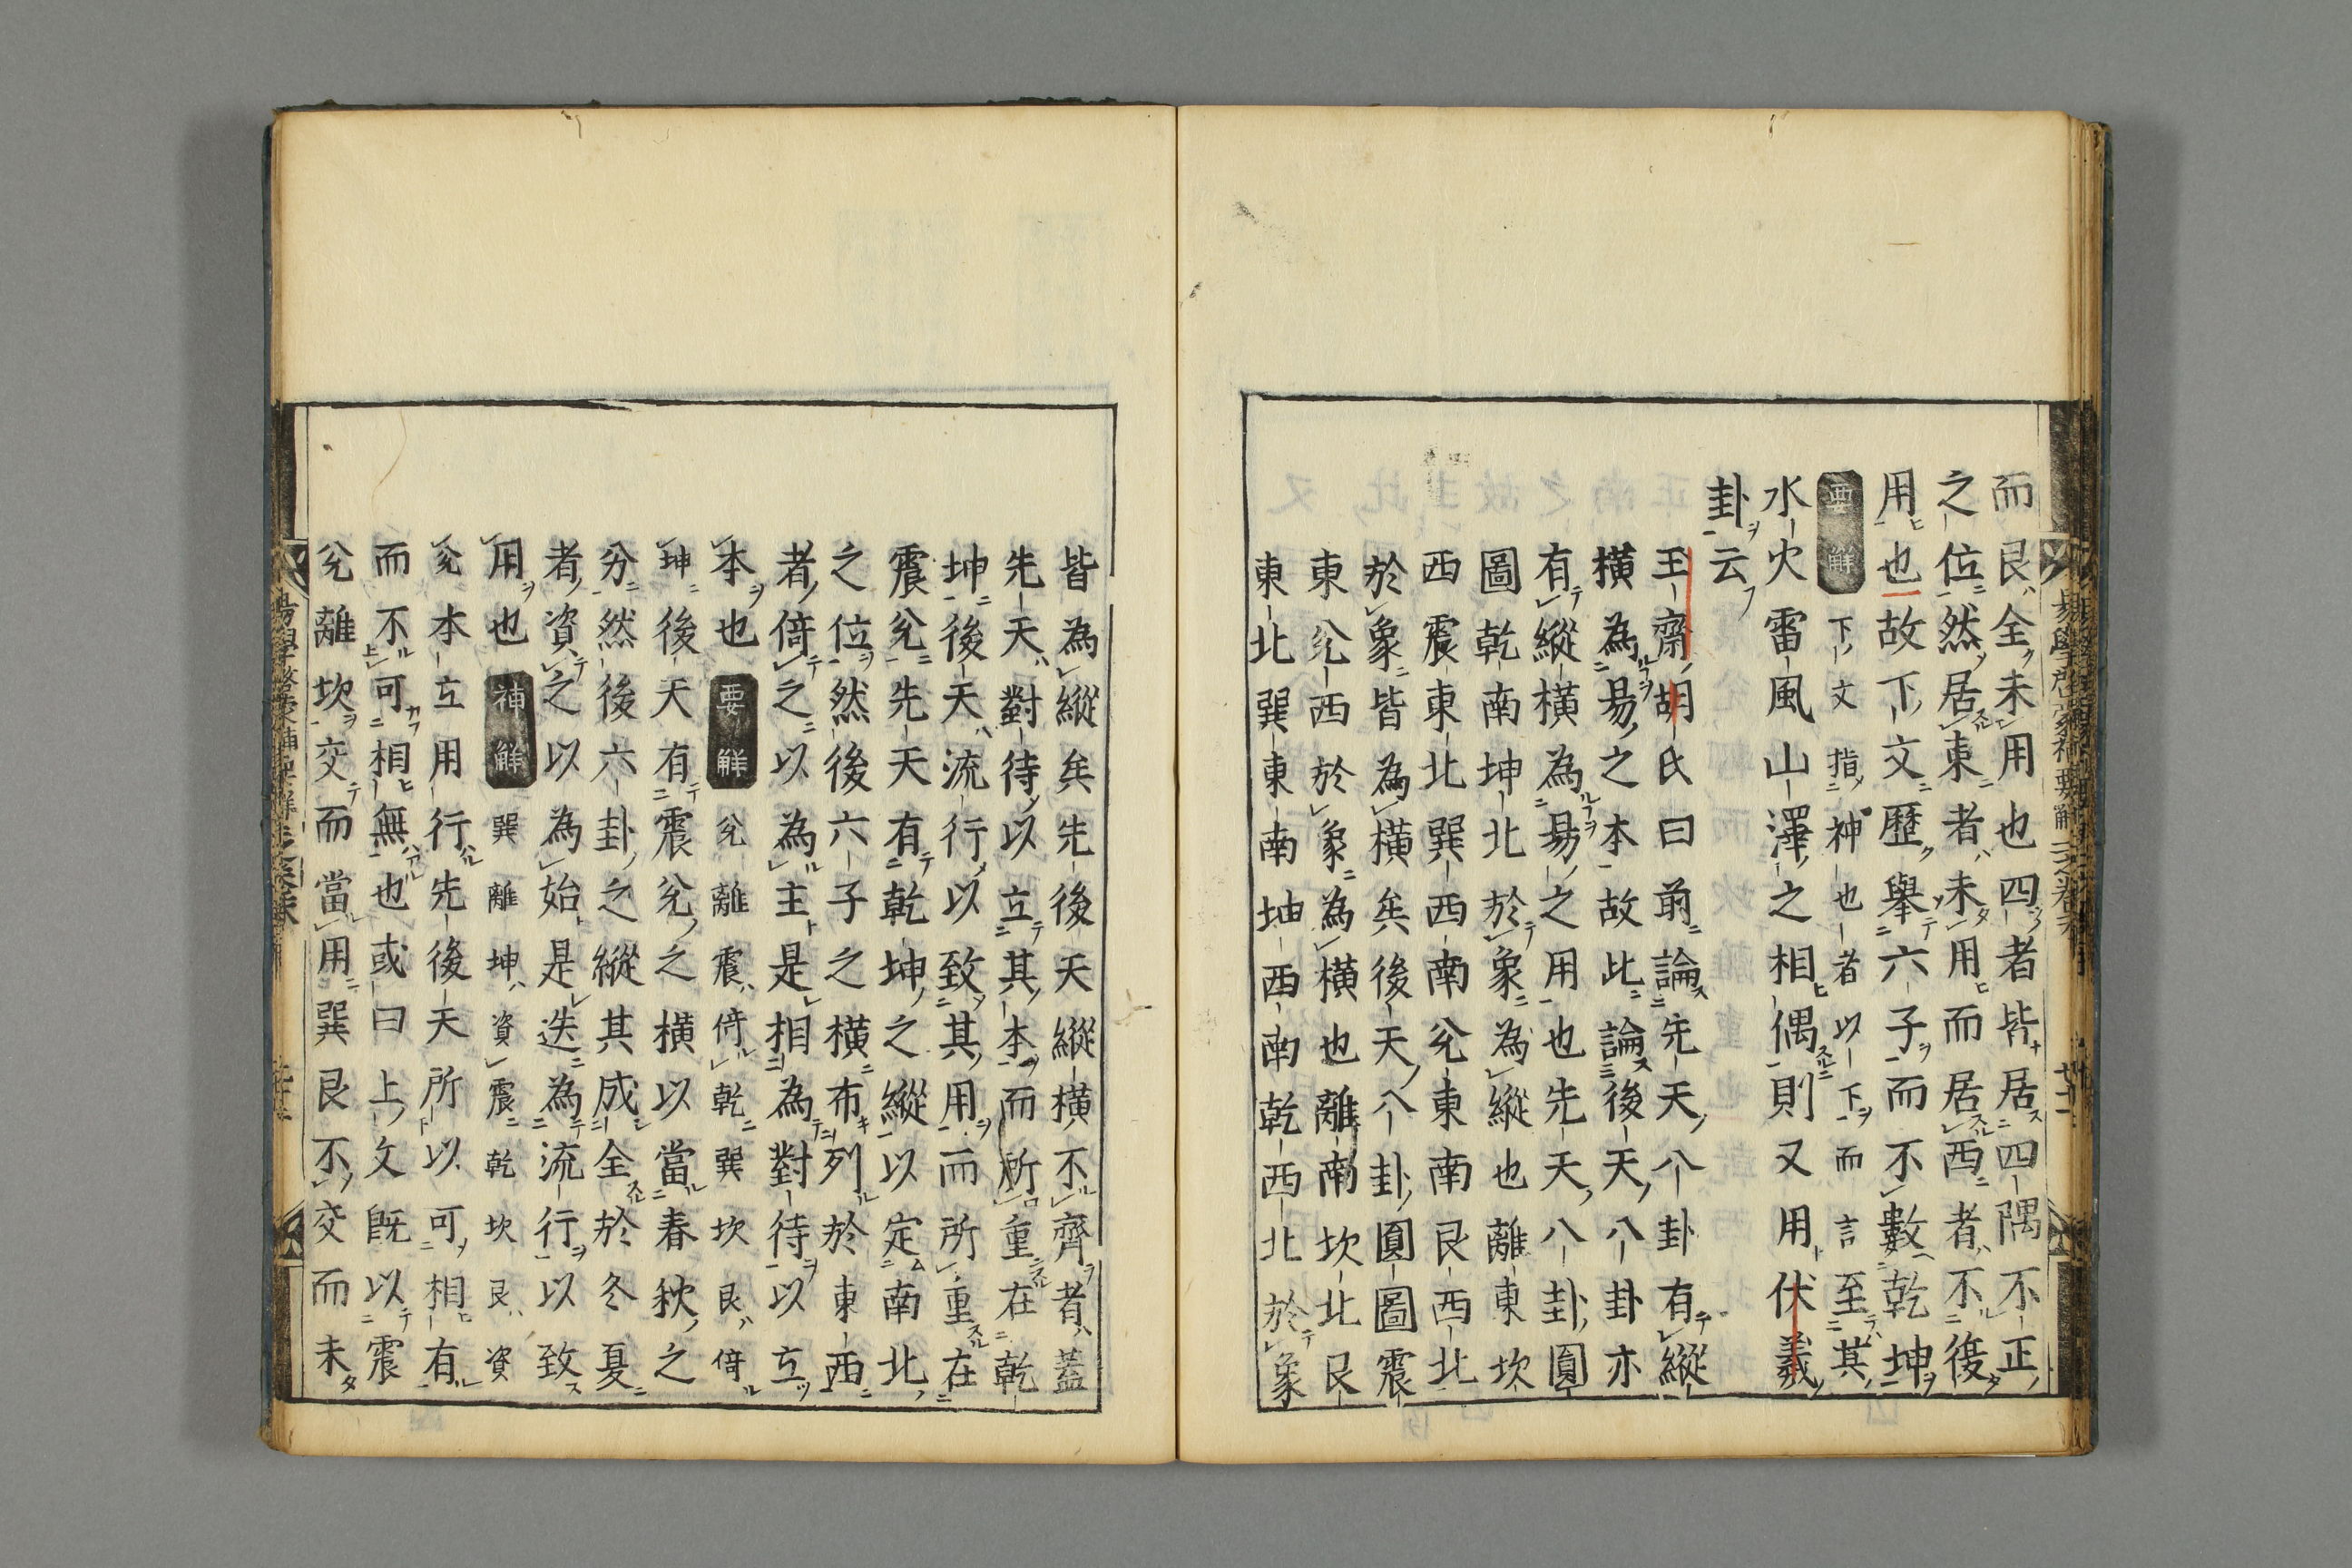 而艮全未用也四者皆居四隅不正
之位然居東者未用而居西者不復
用也故下文歷擧六子而不數乾坤
要解 下文指神也者以下而言至其
水火雷風山澤之相偶則又用伏羲
卦云
王齋胡氏曰前論先天八卦有縱
橫為易之本故此論後天八卦亦
有縱橫為易之用也先天八卦圓
圖乾南坤北於象為縱也離東坎
西震東北巽西南兌東南艮西北
於象皆為橫矣後天八卦圓圖震
東兌西於象為橫也離南坎北艮
東北巽東南坤西南乾西北於象
皆為縱矣先後天縱橫不齊者蓋
先天對待以立其本而所重在乾
坤後天流行以致其用而所重在
震兌先天有乾坤之縱以定南北
之位然後六子之橫布列於東西
者倚之以為主是相為對待以立
本也 要解 兌離震倚乾巽坎艮倚
坤後天有震兌之橫以當春秋之
分然後六卦之縱其成全於冬夏
者資之以為始是迭為流行以致
用也 神解 巽離坤資震乾坎艮資
兌本立用行先後天所以可相有
而不可相無也或曰上文既以震
兌離坎交而當用巽艮不交而未